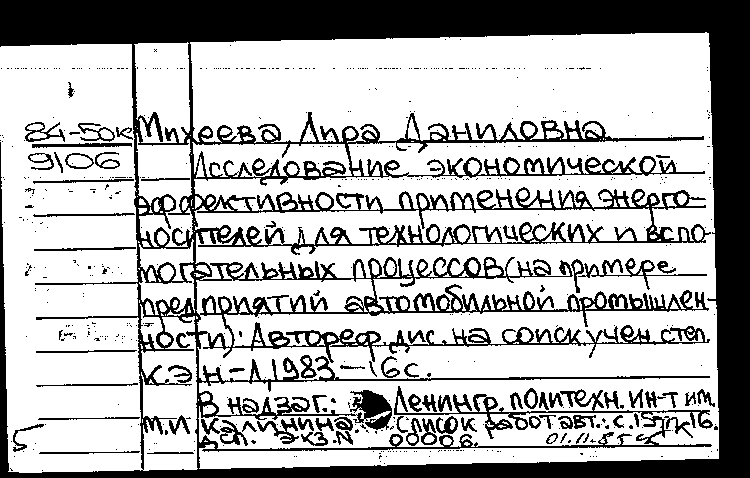 84-50к Михеева, Лира Даниловна
9106 Исследование экономической
эффективности применения энерго-
носителей для технологических и вспо-
могательных процессов (на примере
предприятий автомобильной промышлен-
ности): Автореф. дис. на соиск учен. степ.
к.э.н.-Л, 1983.-16с.
В надзаг.: Ленингр. политехн. ин-т им.
М.И. Калинина. Список работ авт.: с. 15-16.
ДСП. Экз. N 00006. 01.11.85
5